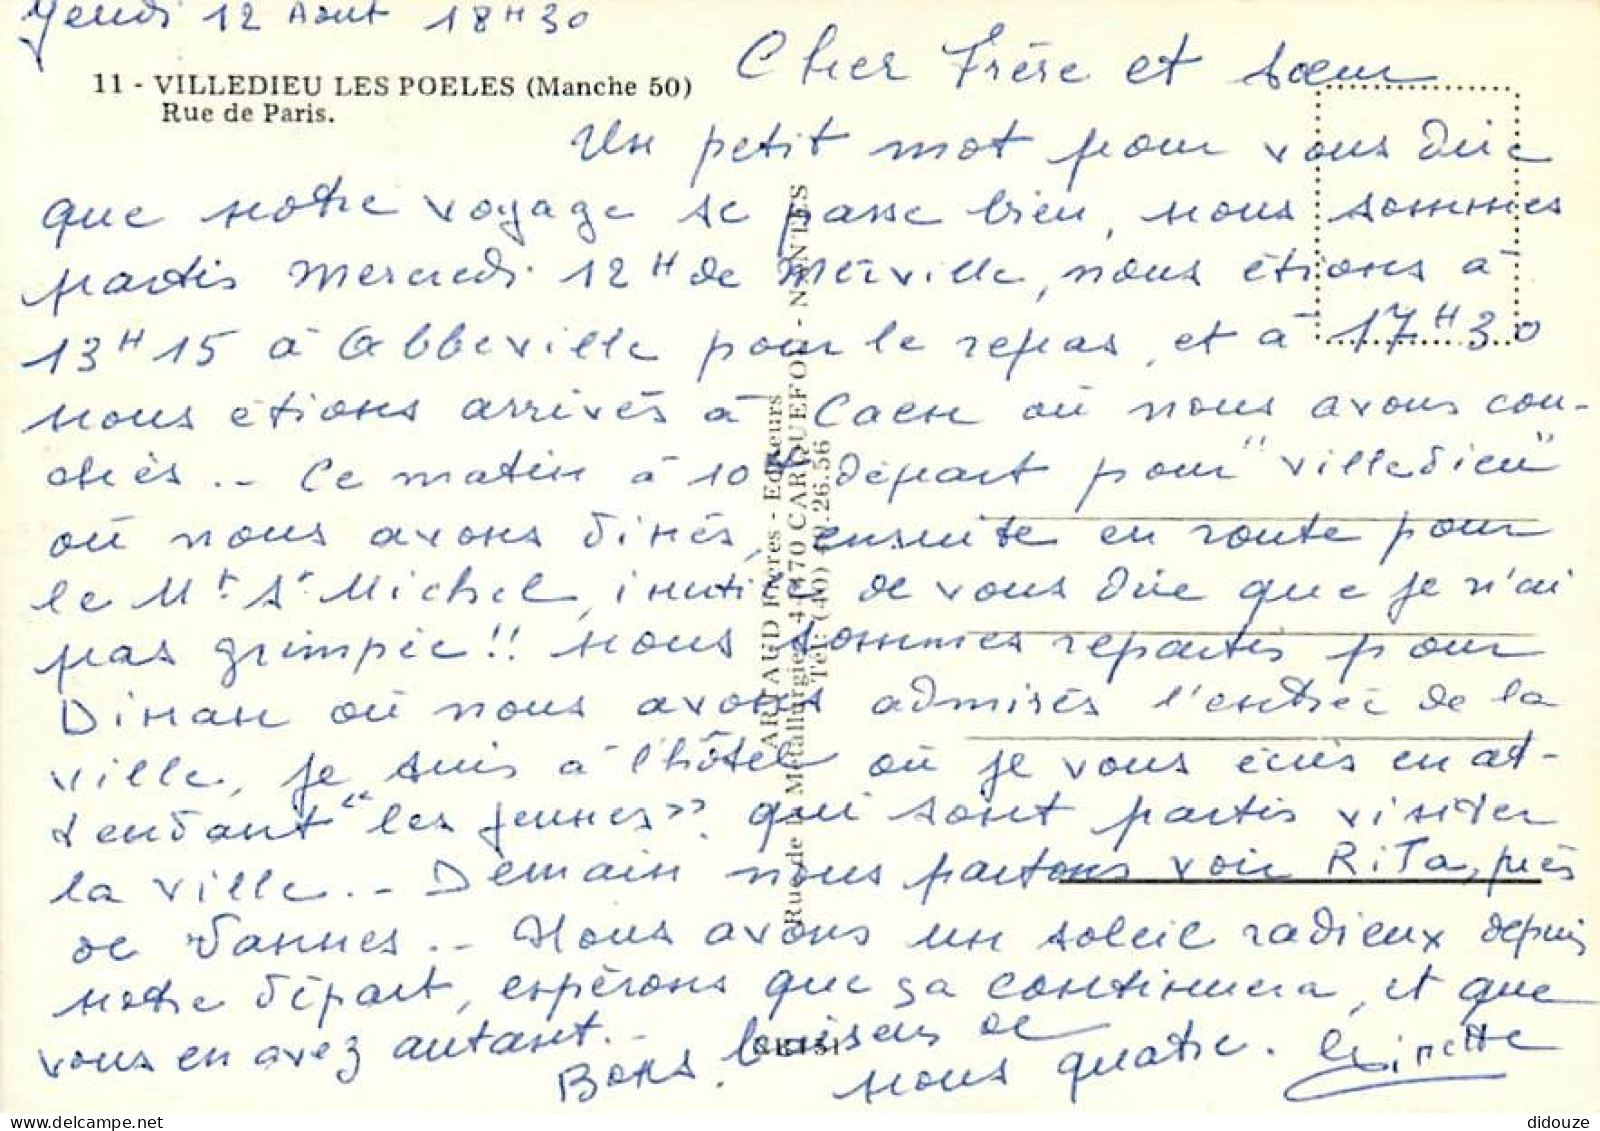 Jeudi 12 Aout 18H30
11 - VILLEDIEU LES POELES (Manche 50)
Rue de Paris.
Cher Frère et soeur
Un petit mot pour vous dire
que notre voyage se passe bien, nous sommes
partis Mercredi 12H de Merville, nous étions à
13H15 à Abbeville pour le repas, et à 17H30
nous étions arrivés à Caen où nous avons cou-
chés.. Ce matin à 10H départ pour "Villedieu"
où nous avons dinés, ensuite en route pour
le Mt St Michel, inutile de vous dire que je n'ai
pas grimpée!! nous sommes repartis pour
Dinan où nous avons admirés l'entrée de la
ville, je suis à l'hôtel où je vous écris en at-
tendant "les jeunes" qui sont partis visiter
la ville.. Demain nous partons voir RiTa, près
de Vannes.. Nous avons un soleil radieux depuis
notre départ, espérons que ça continuera, et que
vous en avez autant..
Bons baisers de
nous quatre.
ARTAUD Frères - Editeurs
Rue de la Métallurgie 44470 CARQUEFOU - NANTES
Tél: (40) 49.26.56
didouze